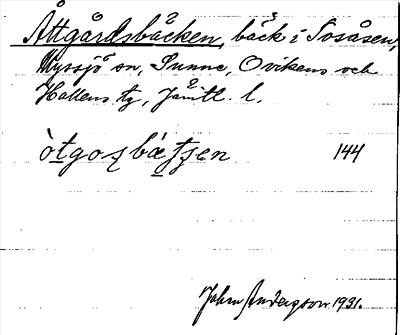 Åttgårdsbäcken, bäck i Tosåsen,
Myssjö sn, Sunne, Ovikens och
Hallens tg, Jämtl. l.
òtgoʂbæ̀tʂen 144
John Anderson 1931.